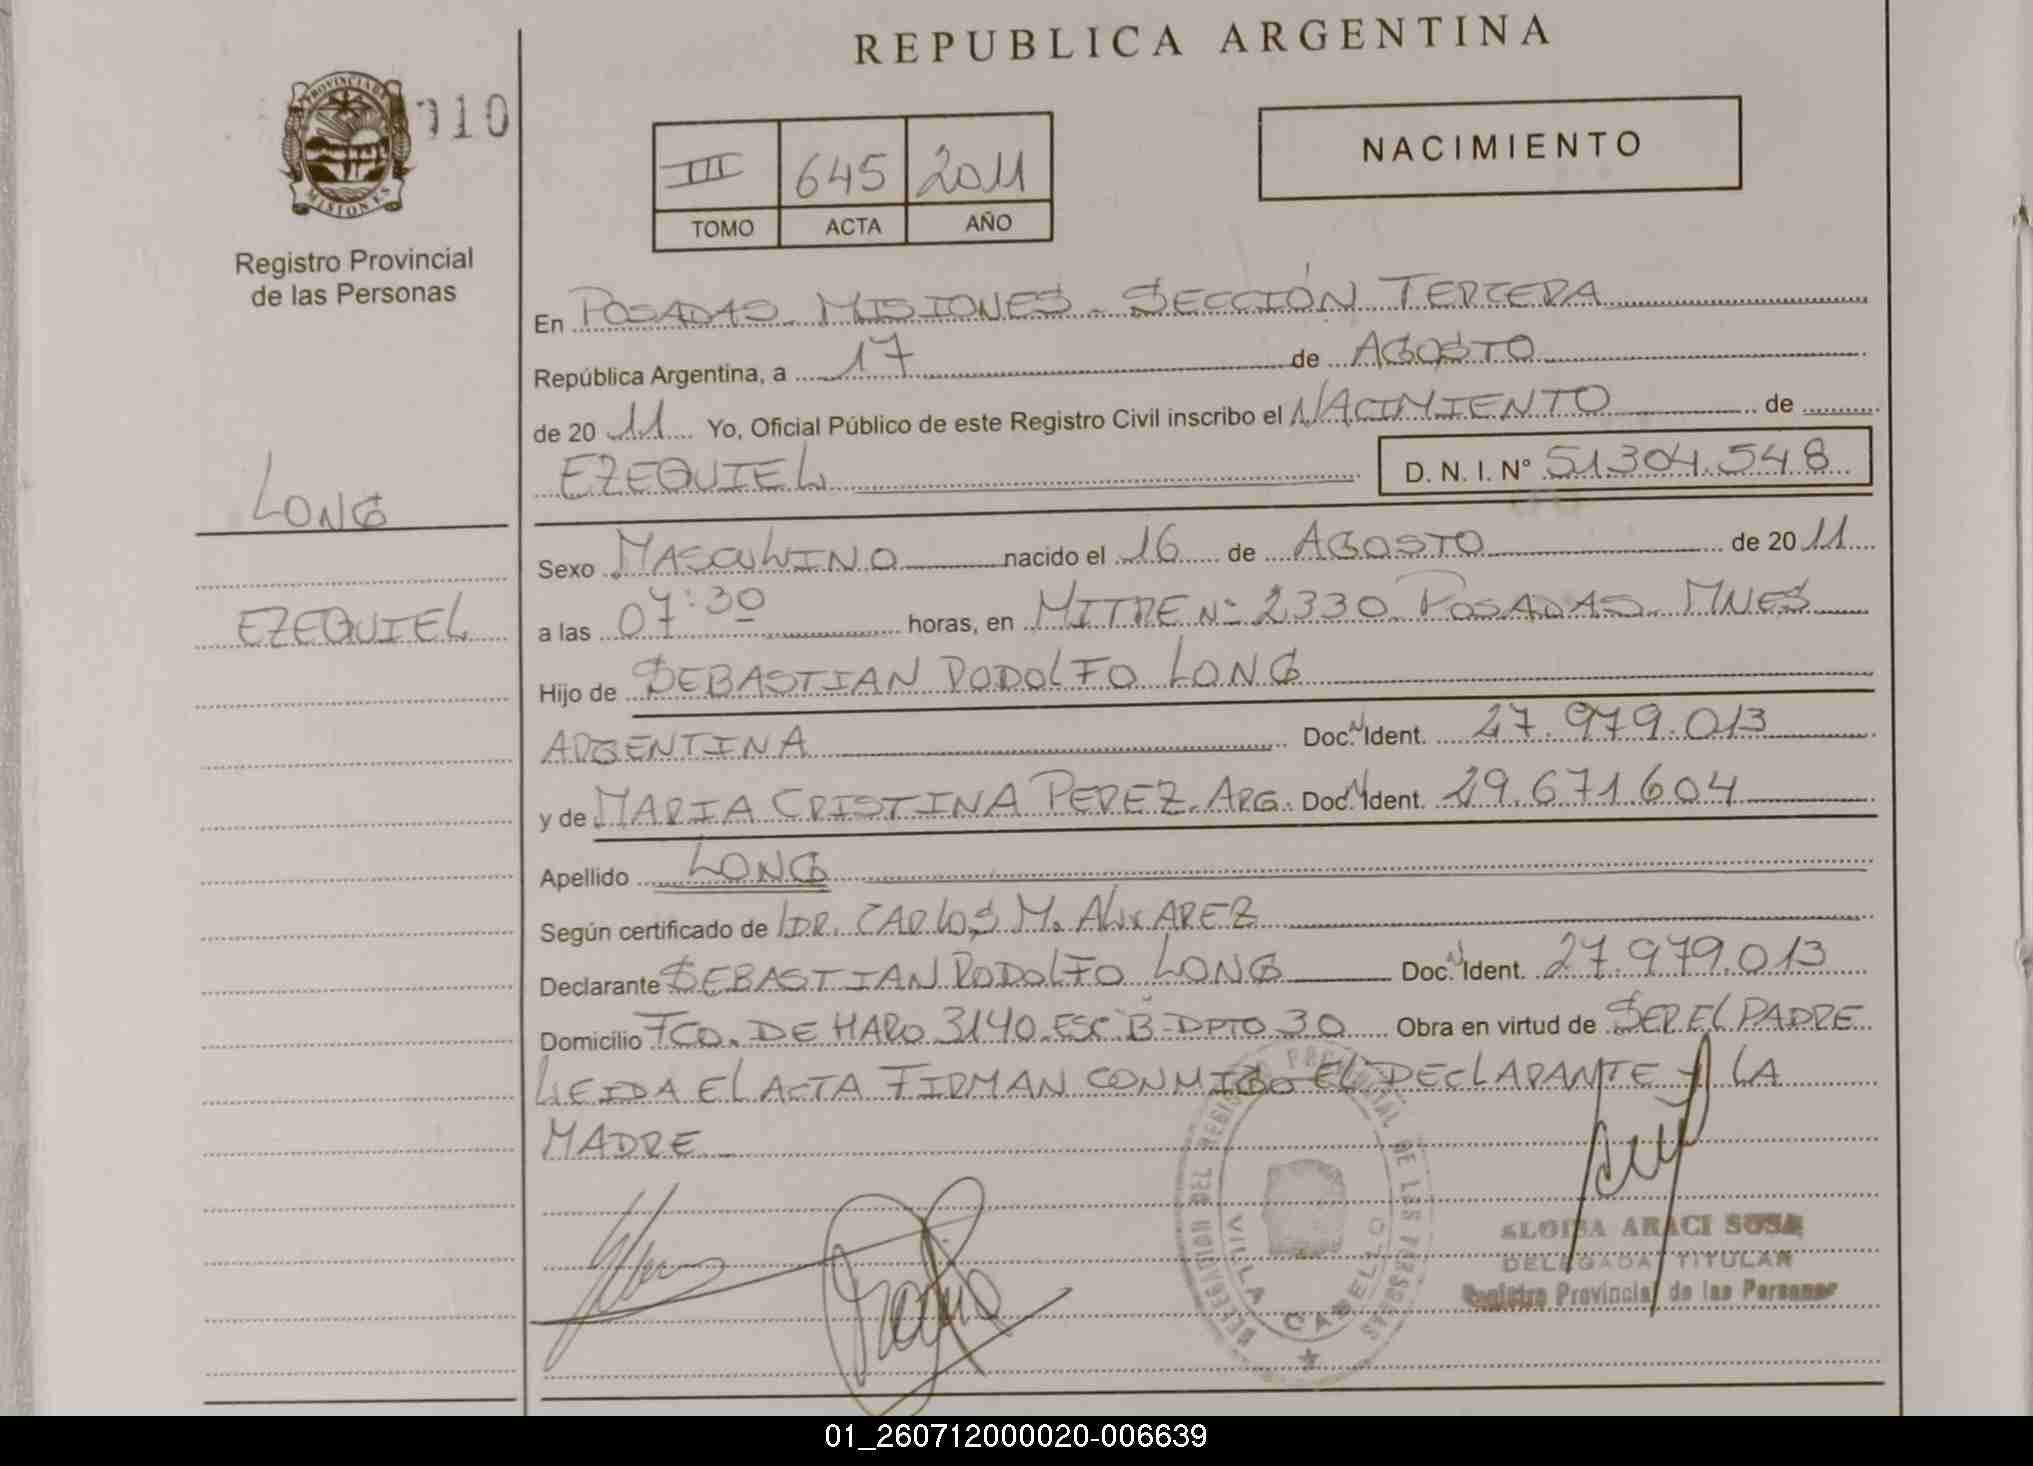 REPUBLICA ARGENTINA
PROVINCIA DE MISIONES
010
NACIMIENTO
III 645 2011
TOMO ACTA AÑO
Registro Provincial
de las Personas
En POSADAS MISIONES - SECCIÓN TERCERA
República Argentina, a 17 de AGOSTO
de 2011 Yo, Oficial Público de este Registro Civil inscribo el NACIMIENTO de
EZEQUIEL D. N. I. Nº 51.304.548
LONG
EZEQUIEL
Sexo MASCULINO nacido el 16 de AGOSTO de 2011
a las 07:30 horas, en MITRE Nº 2330 POSADAS - MNES
Hijo de SEBASTIAN RODOLFO LONG
ARGENTINA Doc. N Ident. 27.979.013
y de MARIA CRISTINA PEREZ - ARG. Doc. N Ident. 29.671.604
Apellido LONG
Según certificado de DR. CARLOS M. ALVAREZ
Declarante SEBASTIAN RODOLFO LONG Doc. N Ident. 27.979.013
Domicilio FCO. DE HARO 3140 - ESC. B - DPTO 30 Obra en virtud de SER EL PADRE
LEIDA EL ACTA FIRMAN CONMIGO EL DECLARANTE Y LA
MADRE
DELEGACION DEL REGISTRO PROVINCIAL DE LAS PERSONAS
VILLA CABELLO
ELOISA ARACI SOSA
DELEGADA TITULAR
Registro Provincial de las Personas
01_260712000020-006639